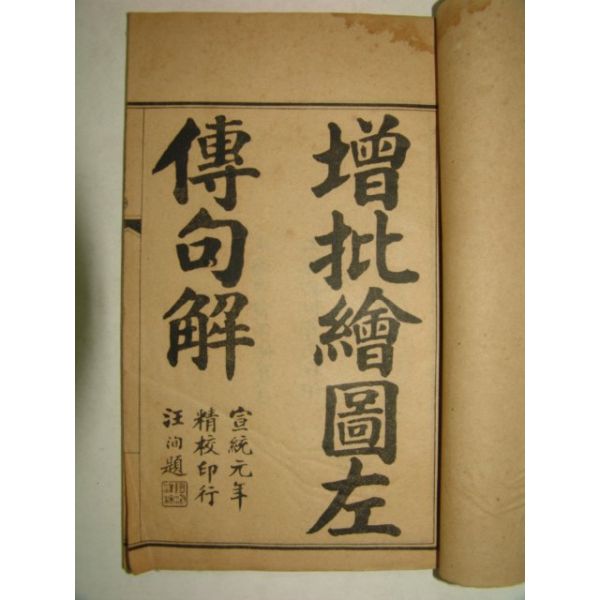 增批繪圖左
傳句解
宣統元年
精校印行
汪洵題